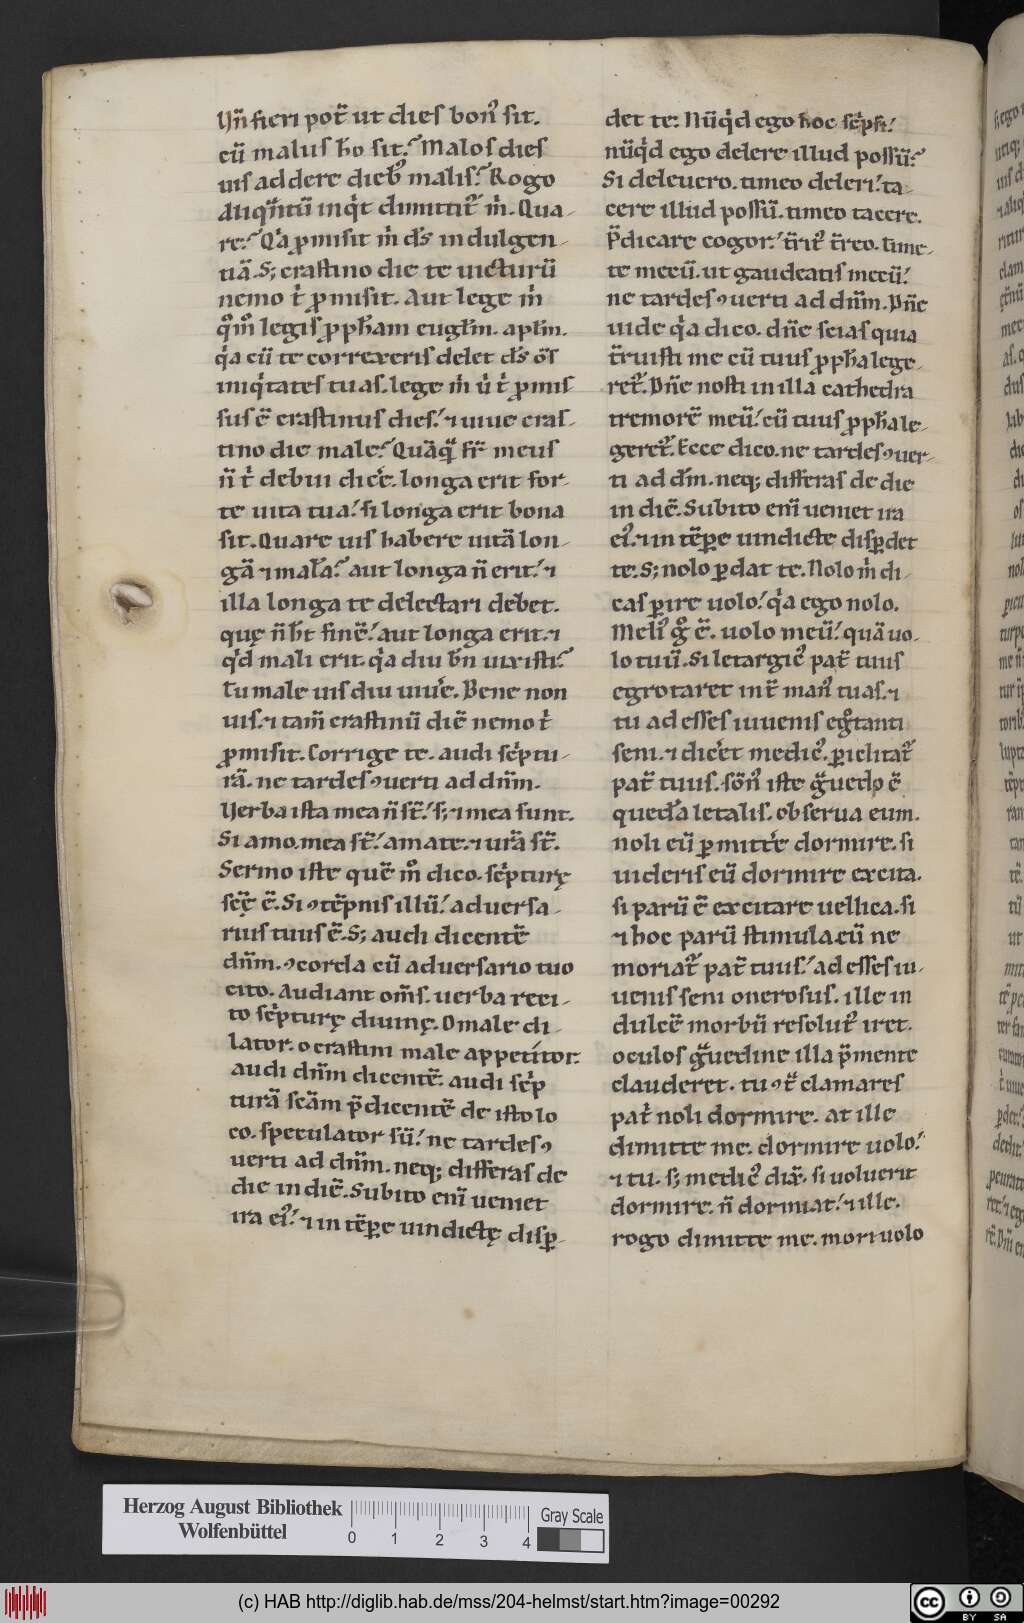 Hn̄ fieri pot̄ ut dies bon᷒ sit.
cū malus h̄o sit? Malos dies
uis addere dieb᷒ malis? Rogo
aliqͣntū inqͥt dimittit᷑ m̊. Qua-
re? Qͥa ꝓmisit m̊ dˢ indulgen-
tiā. S; crastino die te uicturū
nemo t̊ ꝓmisit. Aut lege m̊
qͦm̊ legis ꝓph̄am eugl̄m. apl̄m.
qͥa cū te correxeris delet dˢ oīs
iniqͥtates tuas. lege m̊ u̇ t̊ ꝓmis
sus ē crastinus dies. ⁊ uiue cras-
tino die male? Quāqͣ fr̄ meus
n̄ t̊ debui dic̄e. longa erit for-
te uita tua. si longa erit bona
sit. Quare uis habere uitā lon-
gā ⁊ malā? aut longa n̄ erit. ⁊
illa longa te delectari debet.
quę n̄ h̄t finē. aut longa erit. ⁊
qͥd mali erit. qͥa diu b̄n uixisti?
Tu male uis diu uiue. Bene non
uis. ⁊ tam̄ crastinū diē nemo t̊
ꝓmisit. Corrige te. audi sc̊ptu-
rā. ne tardes ꝯuerti ad dn̄m.
Uerba ista mea n̄ st̄. s; ⁊ mea sunt.
Si amo. mea st̄. amate. ⁊ urā st̄.
Sermo iste quē m̊ dico. sc̊pturę
scę̄ ē. Si ꝯtēpnis illū. aduersa-
rius tuus ē. S; audi dicentē
dn̄m. ꝯcorda cū aduersario tuo
cito. Audiant om̄s. uerba reci-
to sc̊pturę diuinę. O male di-
lator. o crastini male appetitor.
audi dn̄m dicentē. audi sc̊p
turā scām p̄dicentē de isto lo
co. speculator sū. ne tardes ꝯ
uerti ad dn̄m. neq; differas de
die in diē. Subito eni uemet
ira ei᷒. ⁊ in tēꝑe uindictę disꝑ-
det te. Nūqͥd ego hoc sc̊psi.
nūqͥd ego delere illud possū?
Si deleuero. timeo deleri. ta-
cere illud possū. timeo tacere.
P̄dicare cogor. t̄rit᷑ t̄reo. time-
te mecū. ut gaudeatis mecū.
ne tardes ꝯuerti ad dn̄m. Dn̄e
uide qͥa dico. dn̄e scias quia
t̄ruisti me cū tuus ꝓph̄a lege-
ret᷑. Dn̄e nosti in illa cathedra
tremorē meū. cū tuus ꝓph̄a le-
geret᷑. Ecce dico. ne tardes ꝯuer-
ti ad dn̄m. neq; differas de die
in diē. Subito eni ueniet ira
ei᷒. ⁊ in tēꝑe uindicte disꝑdet
te. S; nolo ꝑdat te. Nolo m̊ di-
cas ꝑire uolo. qͥa ego nolo.
Meli᷒ gͦ ē. uolo meū. quā uo-
lo tuū. Si letargic᷒ pat̄ tuus
egrotaret int̄ man᷒ tuas. ⁊
tu ad esses iuuenis egͦtanti
seni. ⁊ dic̄et medic᷒. ꝑiclitat᷑
pat̄ tuus. son᷒ iste gͣuedo ē
quedā letalis. obserua eum.
noli eū ꝑmitt̄e dormire. si
uideris eū dormire excita.
si parū ē excitare uellica. si
⁊ hoc parū stimula. cū ne
moriat᷑ pat̄ tuus. ad esses iu-
uenis seni onerosus. ille in
dulcē morbū resolut᷒ iret.
oculos gͣuedine illa p̄mente
clauderet. tu ꝯtͣ clamares
pat̄ noli dormire. at ille
dimitte me. dormire uolo.
⁊ tu. s; medic᷒ dix̄. si uoluerit
dormire. n̄ dormiat. ⁊ ille.
rogo dimitte me. mori uolo
Herzog August Bibliothek
Wolfenbüttel
0 1 2 3 4
Gray Scale
(c) HAB http://diglib.hab.de/mss/204-helmst/start.htm?image=00292
cc BY SA